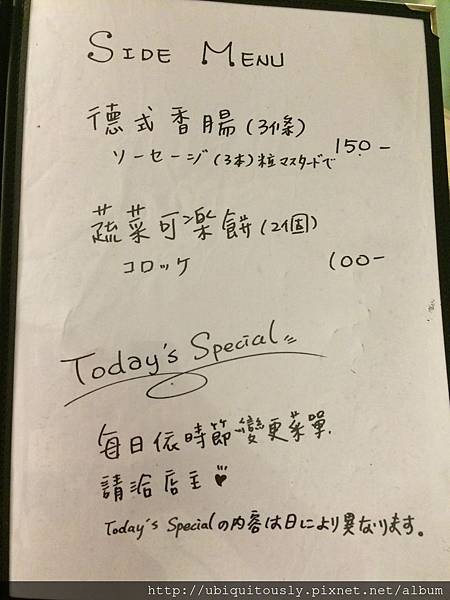 SIDE MENU
德式香腸(3條)
ソーセージ(3本)粒マスタードで 150-
蔬菜可樂餅(2個)
コロッケ 100-
Today's Special
每日依時節變更菜單.
請洽店主♥
Today's Specialの内容は日により異なります。
http://ubiquitously.pixnet.net/album